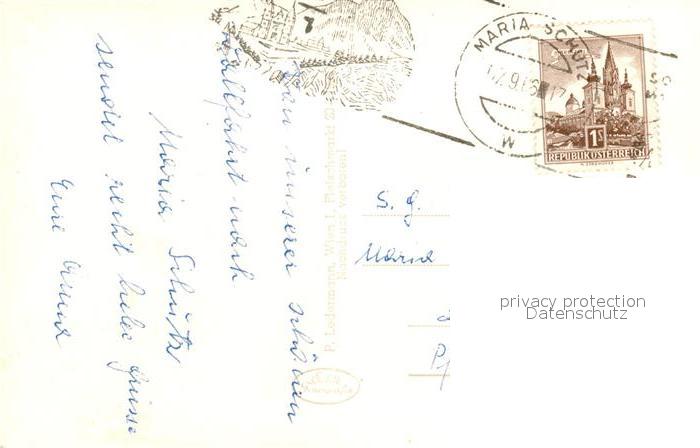 Von unserer schönen
Wallfahrt nach
Maria Schutz
sendet recht liebe Grüsse
Eure Anna
P. Ledermann, Wien I, Fleischmarkt 20
Nachdruck verboten!
MARIA SCHUTZ
1S
REPUBLIK ÖSTERREICH
S. g.
Maria
privacy protection
Datenschutz